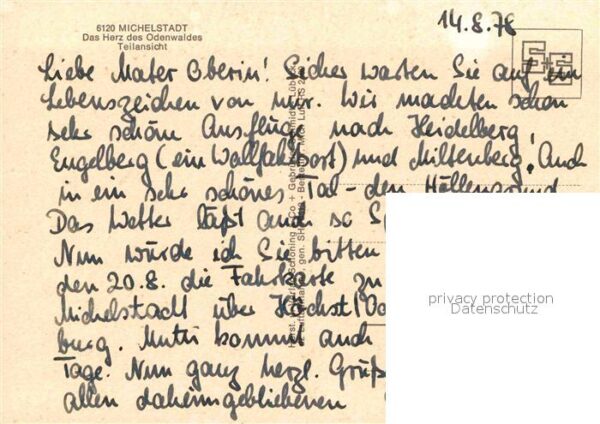 14.8.78
6120 MICHELSTADT
Das Herz des Odenwaldes
Teilansicht
Liebe Mater Oberin! Sicher warten Sie auf ein
Lebenszeichen von mir. Wir machten schon
sehr schöne Ausflüge nach Heidelberg,
Engelberg (ein Wallfahrtsort) und Miltenberg. Auch
in ein sehr schönes Tal - den Höllengrund
Das Wetter läßt auch so
Nun würde ich Sie bitten
den 20.8. die Fahrkarte zu
Michelstadt über Höchst
burg. Mutti kommt auch
Tage. Nun ganz herzl. Grüß
allen daheimgebliebenen
privacy protection
Datenschutz